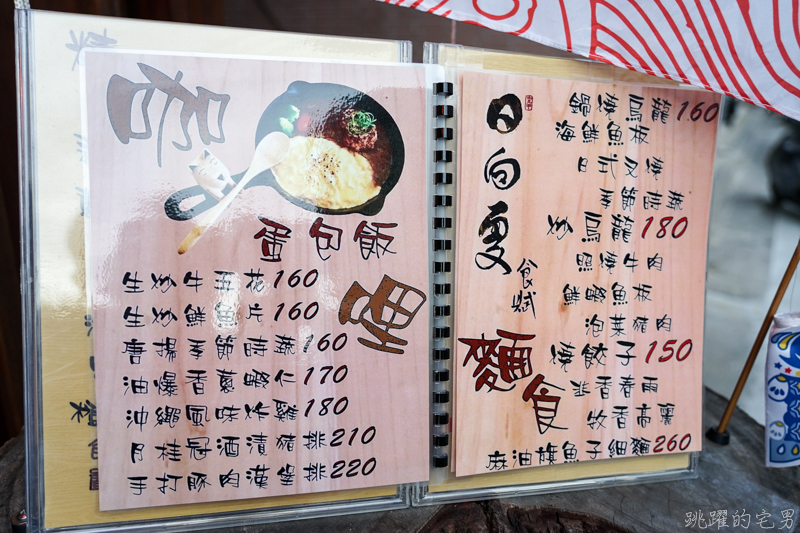 蛋包飯
生炒牛五花160
生炒鮮魚片160
唐揚季節時蔬160
油爆香蔥蝦仁170
沖繩風味炸雞180
月桂冠酒漬豬排210
手打豚肉漢堡排220
日向夏
食賦
麵食
鍋燒烏龍160
海鮮魚板
日式叉燒
季節時蔬
炒烏龍180
照燒牛肉
鮮蝦魚板
泡菜豬肉
燒餃子150
韭香春雨
牧香高麗
麻油旗魚子細麵260
跳躍的宅男